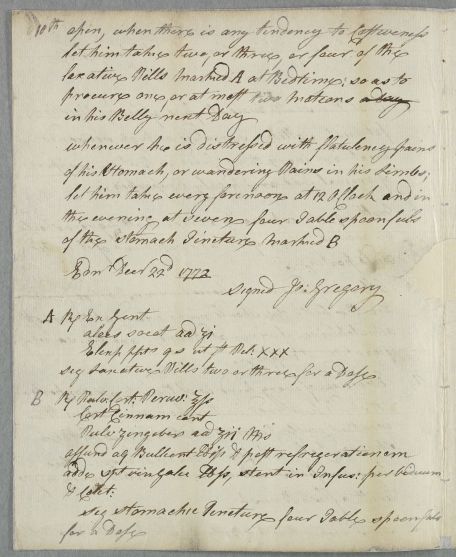 10th open, when there is any tendency to Costiveness
let him take two, or three, or four of the
laxative Pills marked A at Bedtime; so as to
procure one or at most two motions a day
in his Belly next Day
whenever he is distressed with flatulency pains
of his Stomach, or wandering Pains in his Limbs;
let him take every forenoon at 12 oClock and in
the evening at seven four Table spoonfuls
of the stomach Tincture marked B
Edinr Decr 22d 1772
Signed Jo: Gregory
A ℞ Ex Gent
aloes socot aa ʒi
Elix ppts q s ut ft Pil. xxx
sig Laxative Pills two or three for a Dose
B ℞ Pulv. Cort: Peruv: ℥ss
Cort Cinnam cont
Pulv Zingiber aa ʒii Mis
affund aq Bullient ℔iſs & post refregerationem
adde Spt vin Gale ℔ss, stent in Infus: per biduum
& Colet:
sig stomachic Tincture four Table spoonfuls
for a Dose